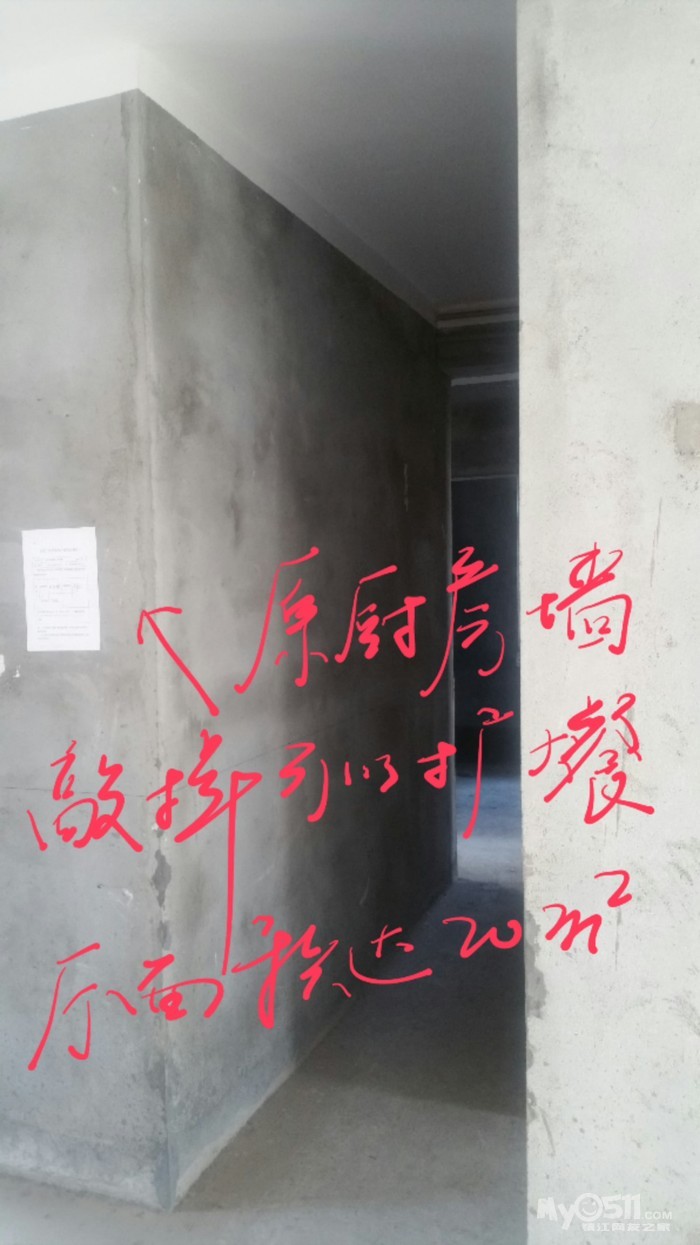 原厨房墙
敲掉可以扩大餐
厅面积达20m²
My0511
镇江网友之家